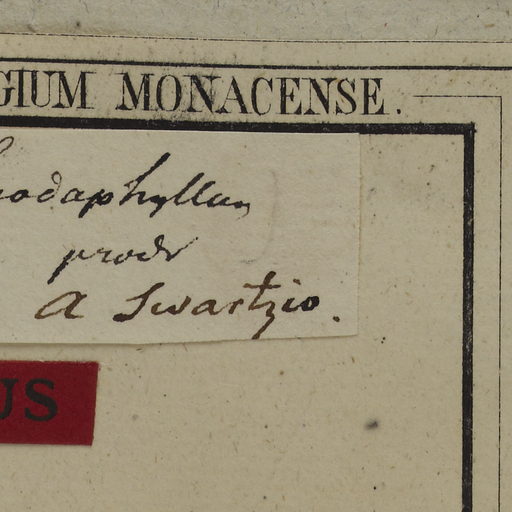 GIUM MONACENSE.
odaphyllum
prodr
A Swartzio.
US